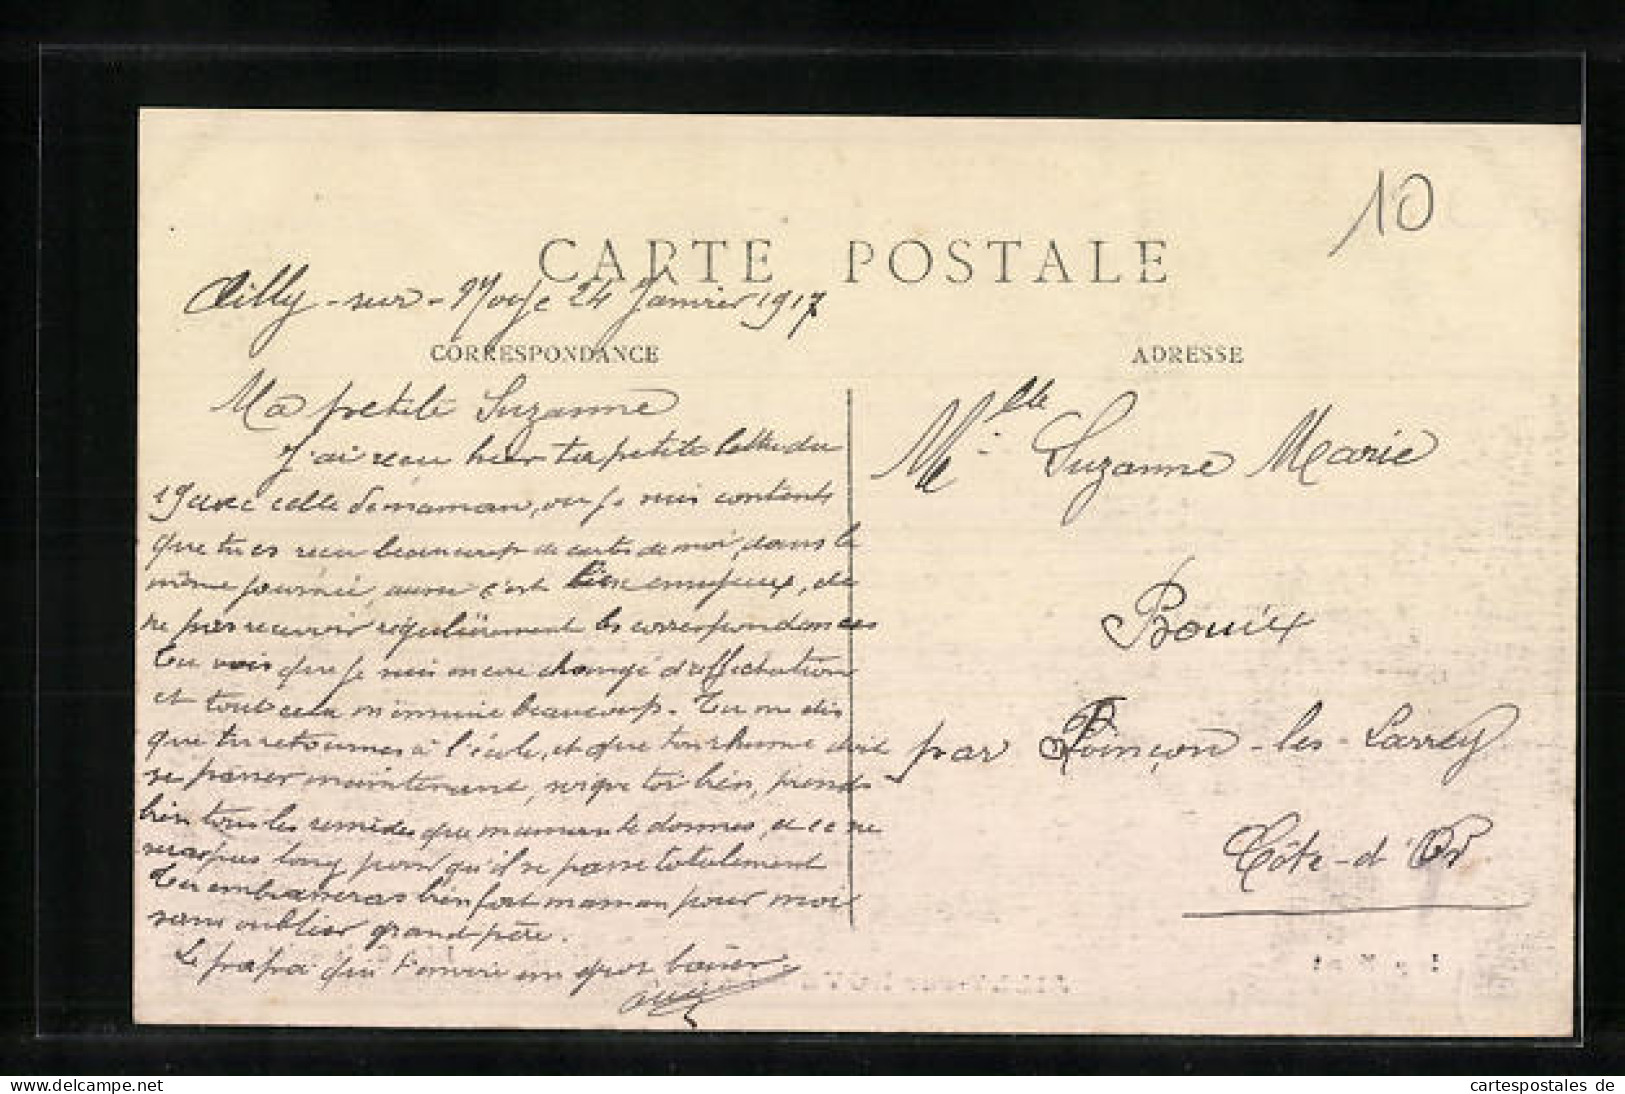 10
CARTE POSTALE
Ailly-sur-Noye 24 Janvier 1917
CORRESPONDANCE
ADRESSE
Ma petite Suzanne
J'ai reçu hier ta petite lettre du
19 avec celle de maman, ou je suis content
que tu es reçu beaucoup de cartes de moi, dans la
même journée, aussi c'est bien ennuyeux, de
ne pas recevoir regulièrement les correspondances
Tu vois que je suis encore changé d'affectation
et tout cela m'ennuie beaucoup. Tu me dis
que tu retournes à l'école, et que ton rhume doit
se passer maintenant, soigne toi bien, prends
bien tous les remèdes que maman te donnes, et ce ne
seras pas long pour qu'il se passe totalement
Tu embrasseras bien fort maman pour moi
sans oublier grand-père.
Le papa qui t'envoie un gros baiser
Melle Suzanne Marie
Bouix
par Poinçon-les-Larrey
Côte-d'Or
cartespostales de
www.delcampe.net